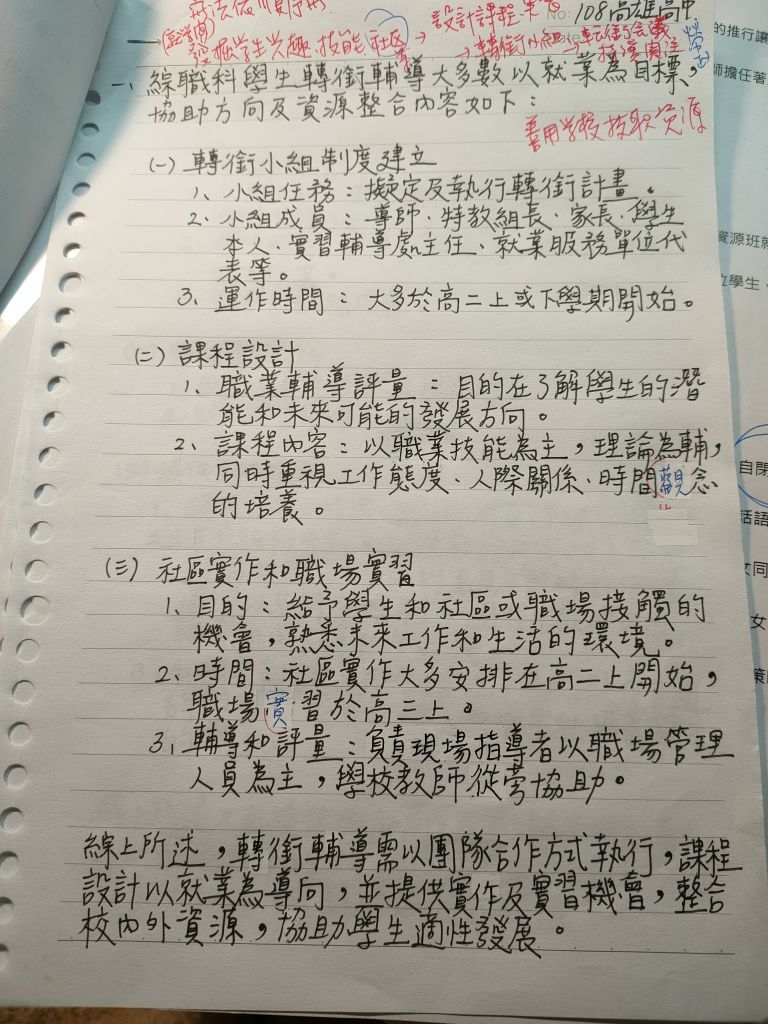 108高雄高中
發掘学生兴趣、技能 社区 → 設計課程
→ 轉銜小組 → 轉銜会議
一、綜職科學生轉銜輔導大多數以就業為目標,
協助方向及資源整合內容如下：
善用学校技职资源
(一) 轉銜小組制度建立
1、小組任務：擬定及執行轉銜計畫。
2、小組成員：導師、特教組長、家長、學生
本人、實習輔導處主任、就業服務單位代
表等。
3、運作時間：大多於高二上或下學期開始。
(二) 課程設計
1、職業輔導評量：目的在了解學生的潛
能和未來可能的發展方向。
2、課程內容：以職業技能為主，理論為輔，
同時重視工作態度、人際關係、時間觀念
的培養。
(三) 社區實作和職場實習
1、目的：給予學生和社區或職場接觸的
機會，熟悉未來工作和生活的環境。
2、時間：社區實作大多安排在高二上開始，
職場實習於高三上。
3、輔導和評量：負責現場指導者以職場管理
人員為主，學校教師從旁協助。
綜上所述，轉銜輔導需以團隊合作方式執行，課程
設計以就業為導向，並提供實作及實習機會，整合
校內外資源，協助學生適性發展。
的推行讓
師擔任著
資源班就
位學生，
自閉
話語
女同
女
策